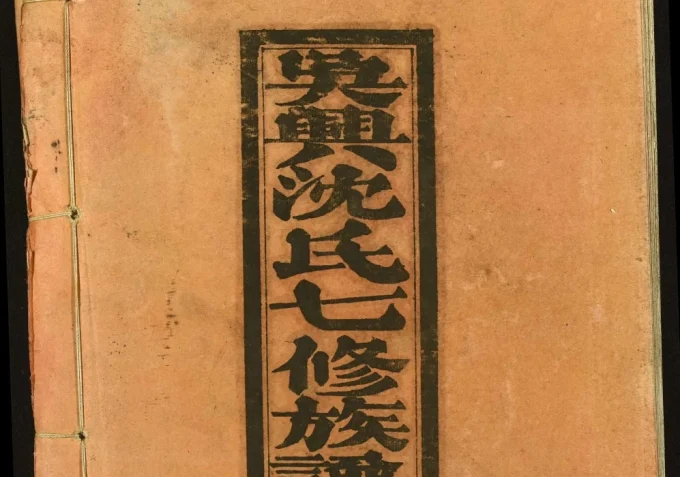 吳興沈氏七修族譜